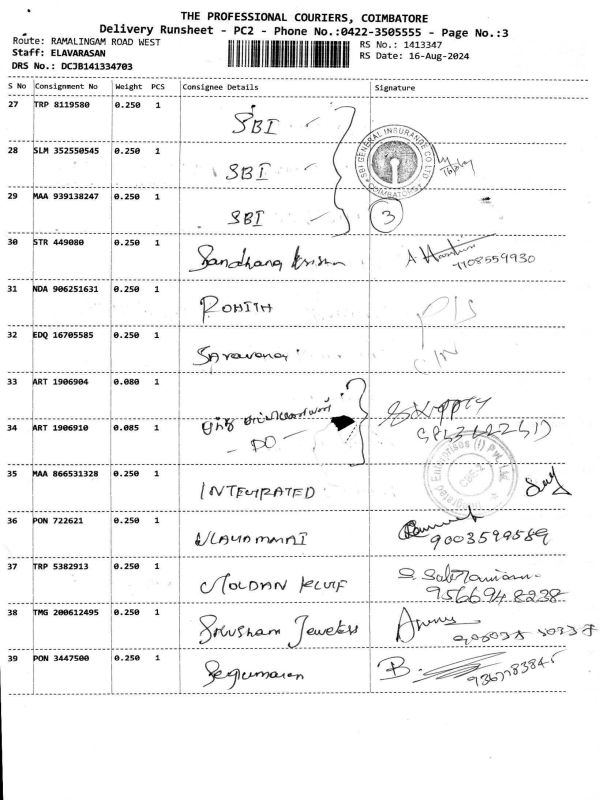 THE PROFESSIONAL COURIERS, COIMBATORE
Delivery Runsheet - PC2 - Phone No.:0422-3505555 - Page No.:3
Route: RAMALINGAM ROAD WEST RS No.: 1413347
Staff: ELAVARASAN RS Date: 16-Aug-2024
DRS No.: DCJB141334703
S No Consignment No Weight PCS Consignee Details Signature
27 TRP 8119580 0.250 1 SBI
SBI GENERAL INSURANCE CO LTD COIMBATORE
28 SLM 352550545 0.250 1 SBI
29 MAA 939138247 0.250 1 SBI 3
30 STR 449080 0.250 1 7108559930
31 NDA 906251631 0.250 1 ROHITH P/S
32 EDQ 16705585 0.250 1 Saravanan C/N
33 ART 1906904 0.080 1
34 ART 1906910 0.085 1 - DO -
Integrated Enterprises (I) Pvt. Ltd. CBE-2
35 MAA 866531328 0.250 1 INTEGRATED
36 PON 722621 0.250 1 9003599589
37 TRP 5382913 0.250 1 S. Subramaniam 9566948238
38 TMG 200612495 0.250 1 Jewelers
39 PON 3447500 0.250 1 B. 9367783845